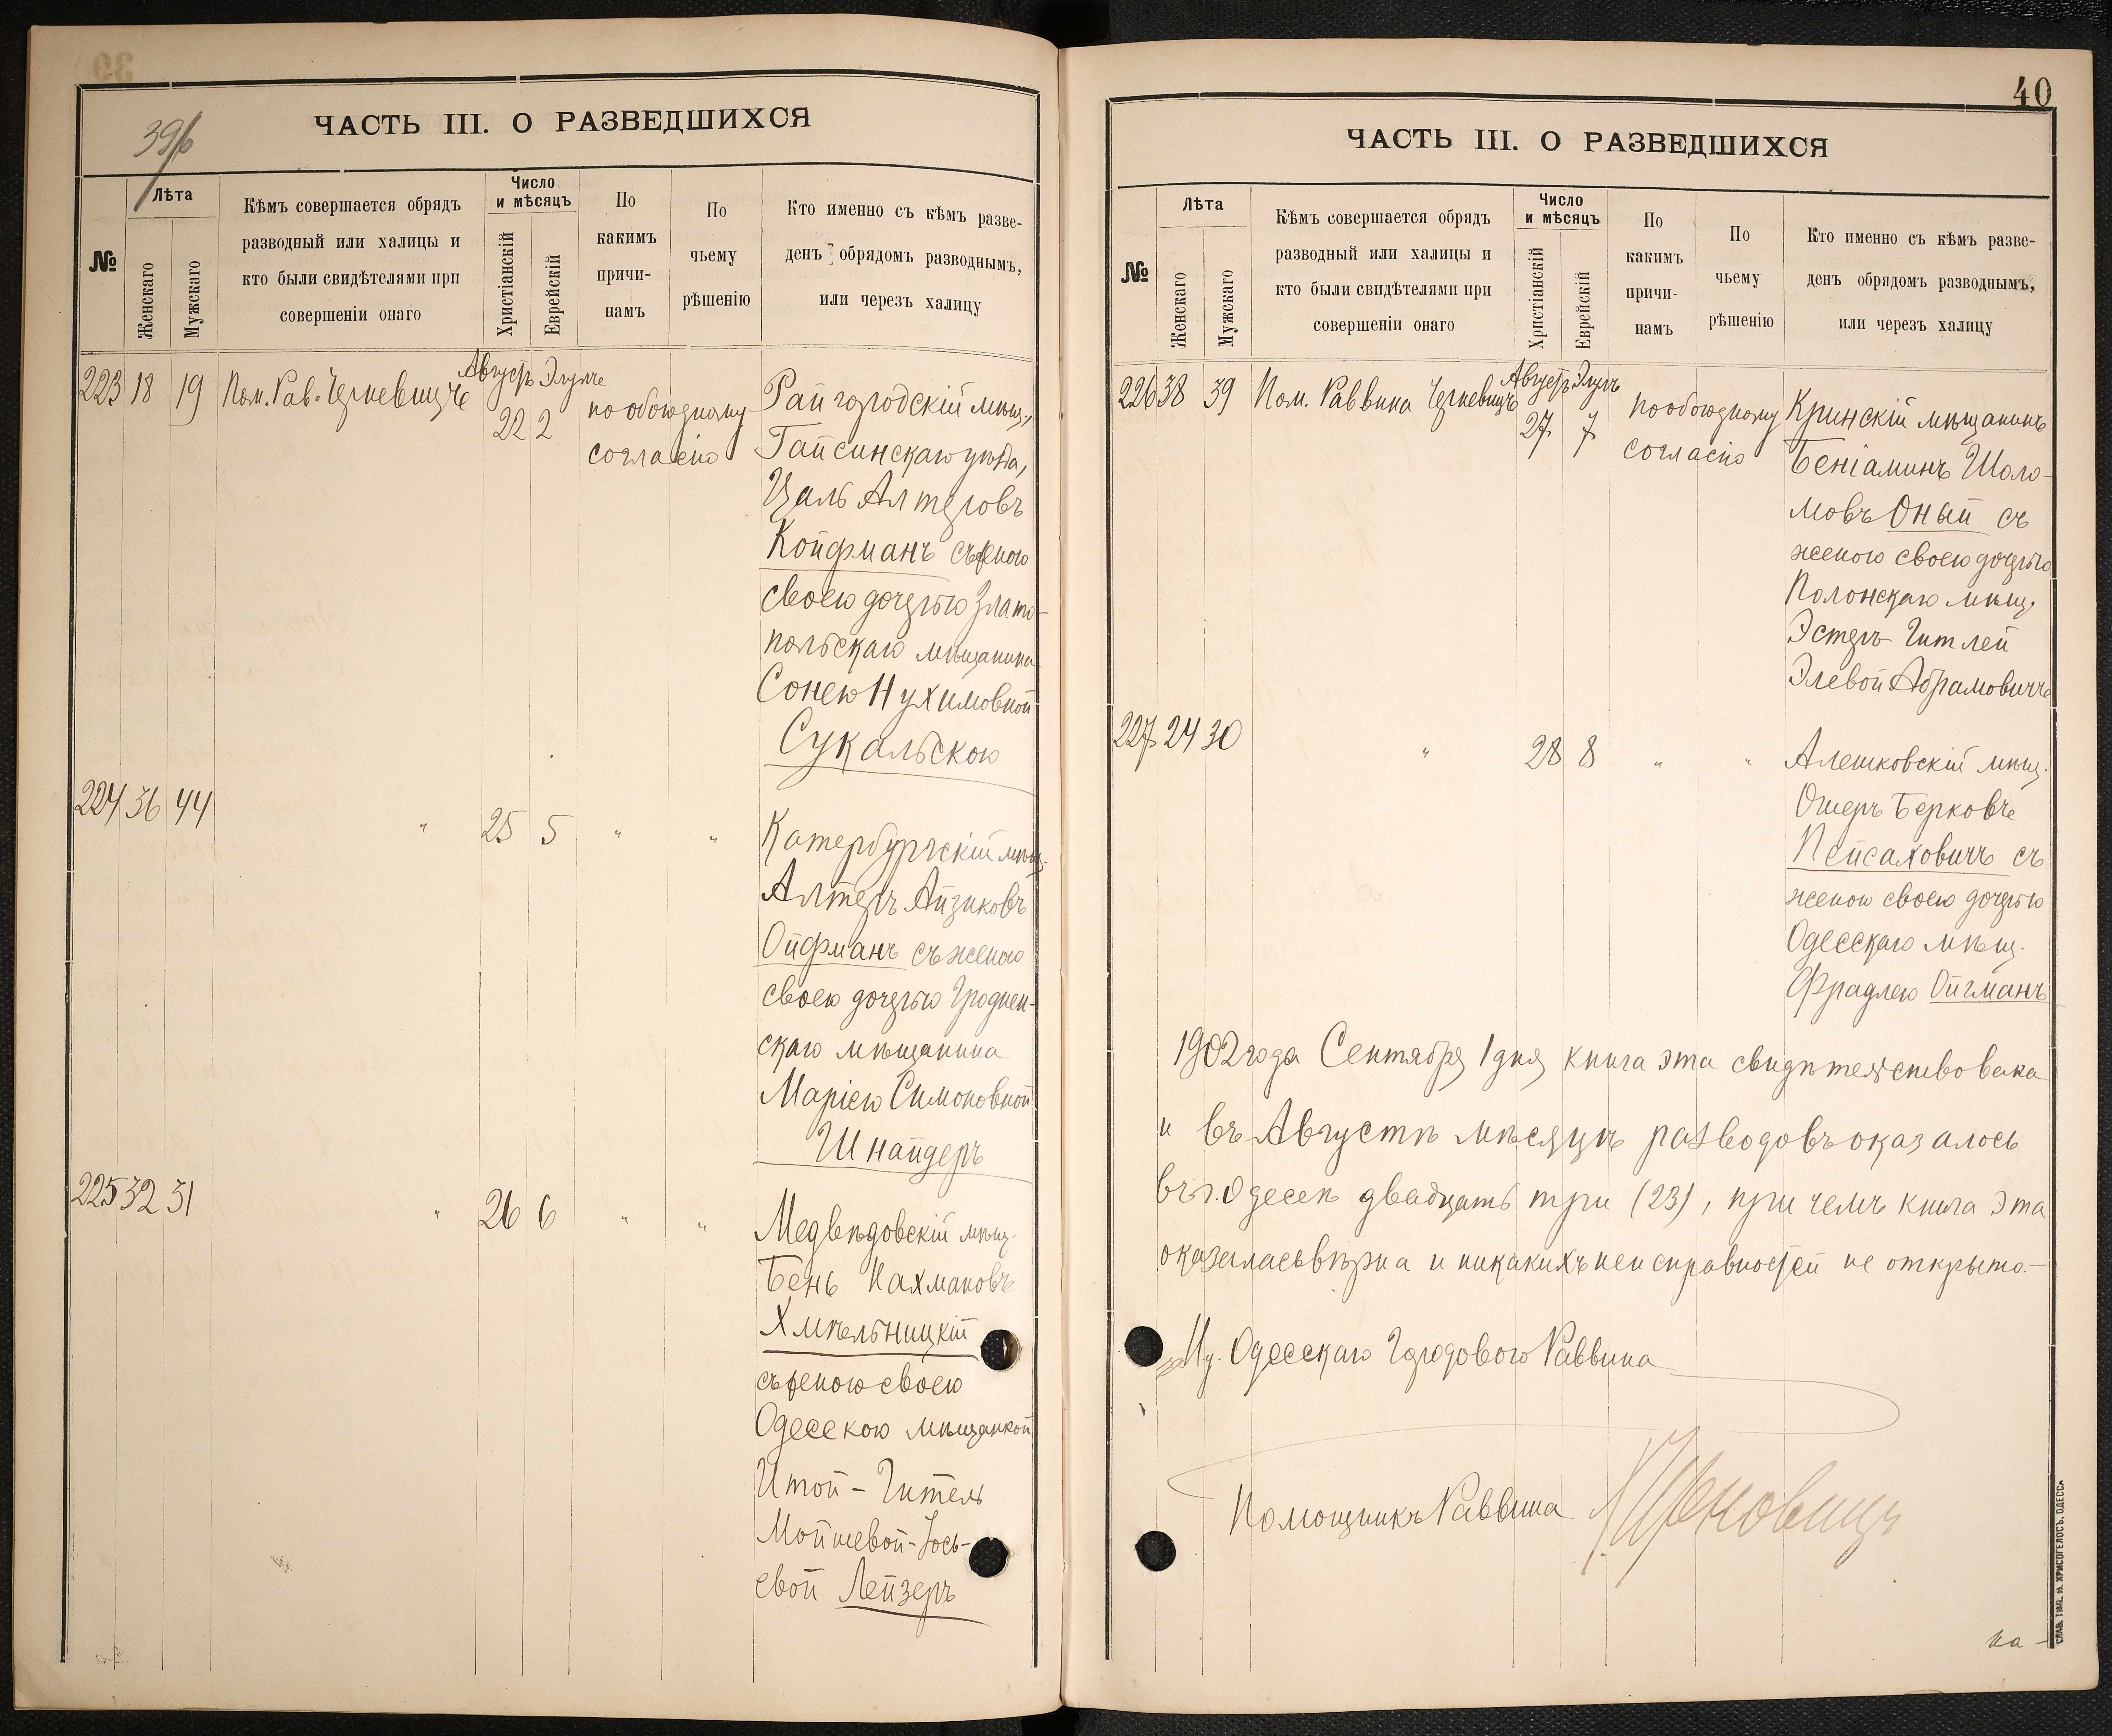 39/б
ЧАСТЬ III. О РАЗВЕДШИХСЯ
№
Лѣта
Женскаго
Мужскаго
Кѣмъ совершается обрядъ
разводный или халицы и
кто были свидѣтелями прп
совершеніи онаго
Число
и мѣсяцъ
Христіанскій
Еврейскій
По
какимъ
причи-
намъ
По
чьему
рѣшенію
Кто именно съ кѣмъ разве-
денъ обрядомъ разводнымъ,
или черезъ халицу
223 18 19 Пом. Рав.
Августъ
22 2
по обоюдному
согласію
Райгородскій мѣщ.,
Гайсинскаго уѣзда,
Цаль Алтеровъ
Койфманъ съ женою
своею дочерью Злато-
польскаго мѣщанина
Сонею Нухимовной
Сукальскою
224 36 44 " 25 5 " "
Катербургскій мѣщ.
Алтеръ Айзиковъ
Ойфманъ съ женою
своею дочерью Гроднен-
скаго мѣщанина
Маріею Симоновной
Шнайдеръ
225 32 31 " 26 6 " "
Медвѣдовскій мѣщ.
Бень Нахмановъ
Хмѣльницкій
съ женою своею
Одесскою мѣщанкой
Итой-Гитель
Мойшевой-Іось-
евой Лейзеръ
40
ЧАСТЬ III. О РАЗВЕДШИХСЯ
№
Лѣта
Женскаго
Мужскаго
Кѣмъ совершается обрядъ
разводный или халицы и
кто были свидѣтелями при
совершеніи онаго
Число
и мѣсяцъ
Христіанскій
Еврейскій
По
какимъ
причи-
намъ
По
чьему
рѣшенію
Кто именно съ кѣмъ разве-
денъ обрядомъ разводнымъ,
или черезъ халицу
226 38 39 Пом. Раввина
Августъ
27 7
по обоюдному
согласію
Кринскій мѣщанинъ
Беніаминъ Шоло-
мовъ Оный съ
женою своею дочерью
Полонскаго мѣщ.
Эстеръ-Гитлей
Элевой Абрамовичъ
227 24 30 " 28 8 " "
Алешковскій мѣщ.
Ошеръ Берковъ
Пейсаховичъ съ
женою своею дочерью
Одесскаго мѣщ.
Фрадлею Ойгманъ
1902 года Сентября 1 дня книга эта свидѣтельствована
и въ Августѣ мѣсяцѣ разводовъ оказалось
въ г. Одессѣ двадцать три (23), при чемъ книга эта
оказалась вѣрна и никакихъ неисправностей не открыто.-
И.д. Одесскаго Городового Раввина
Помощникъ Раввина
на-
СЛАВ. ТИП. М. ХРИСОГЕЛОСЪ, ОДЕССА